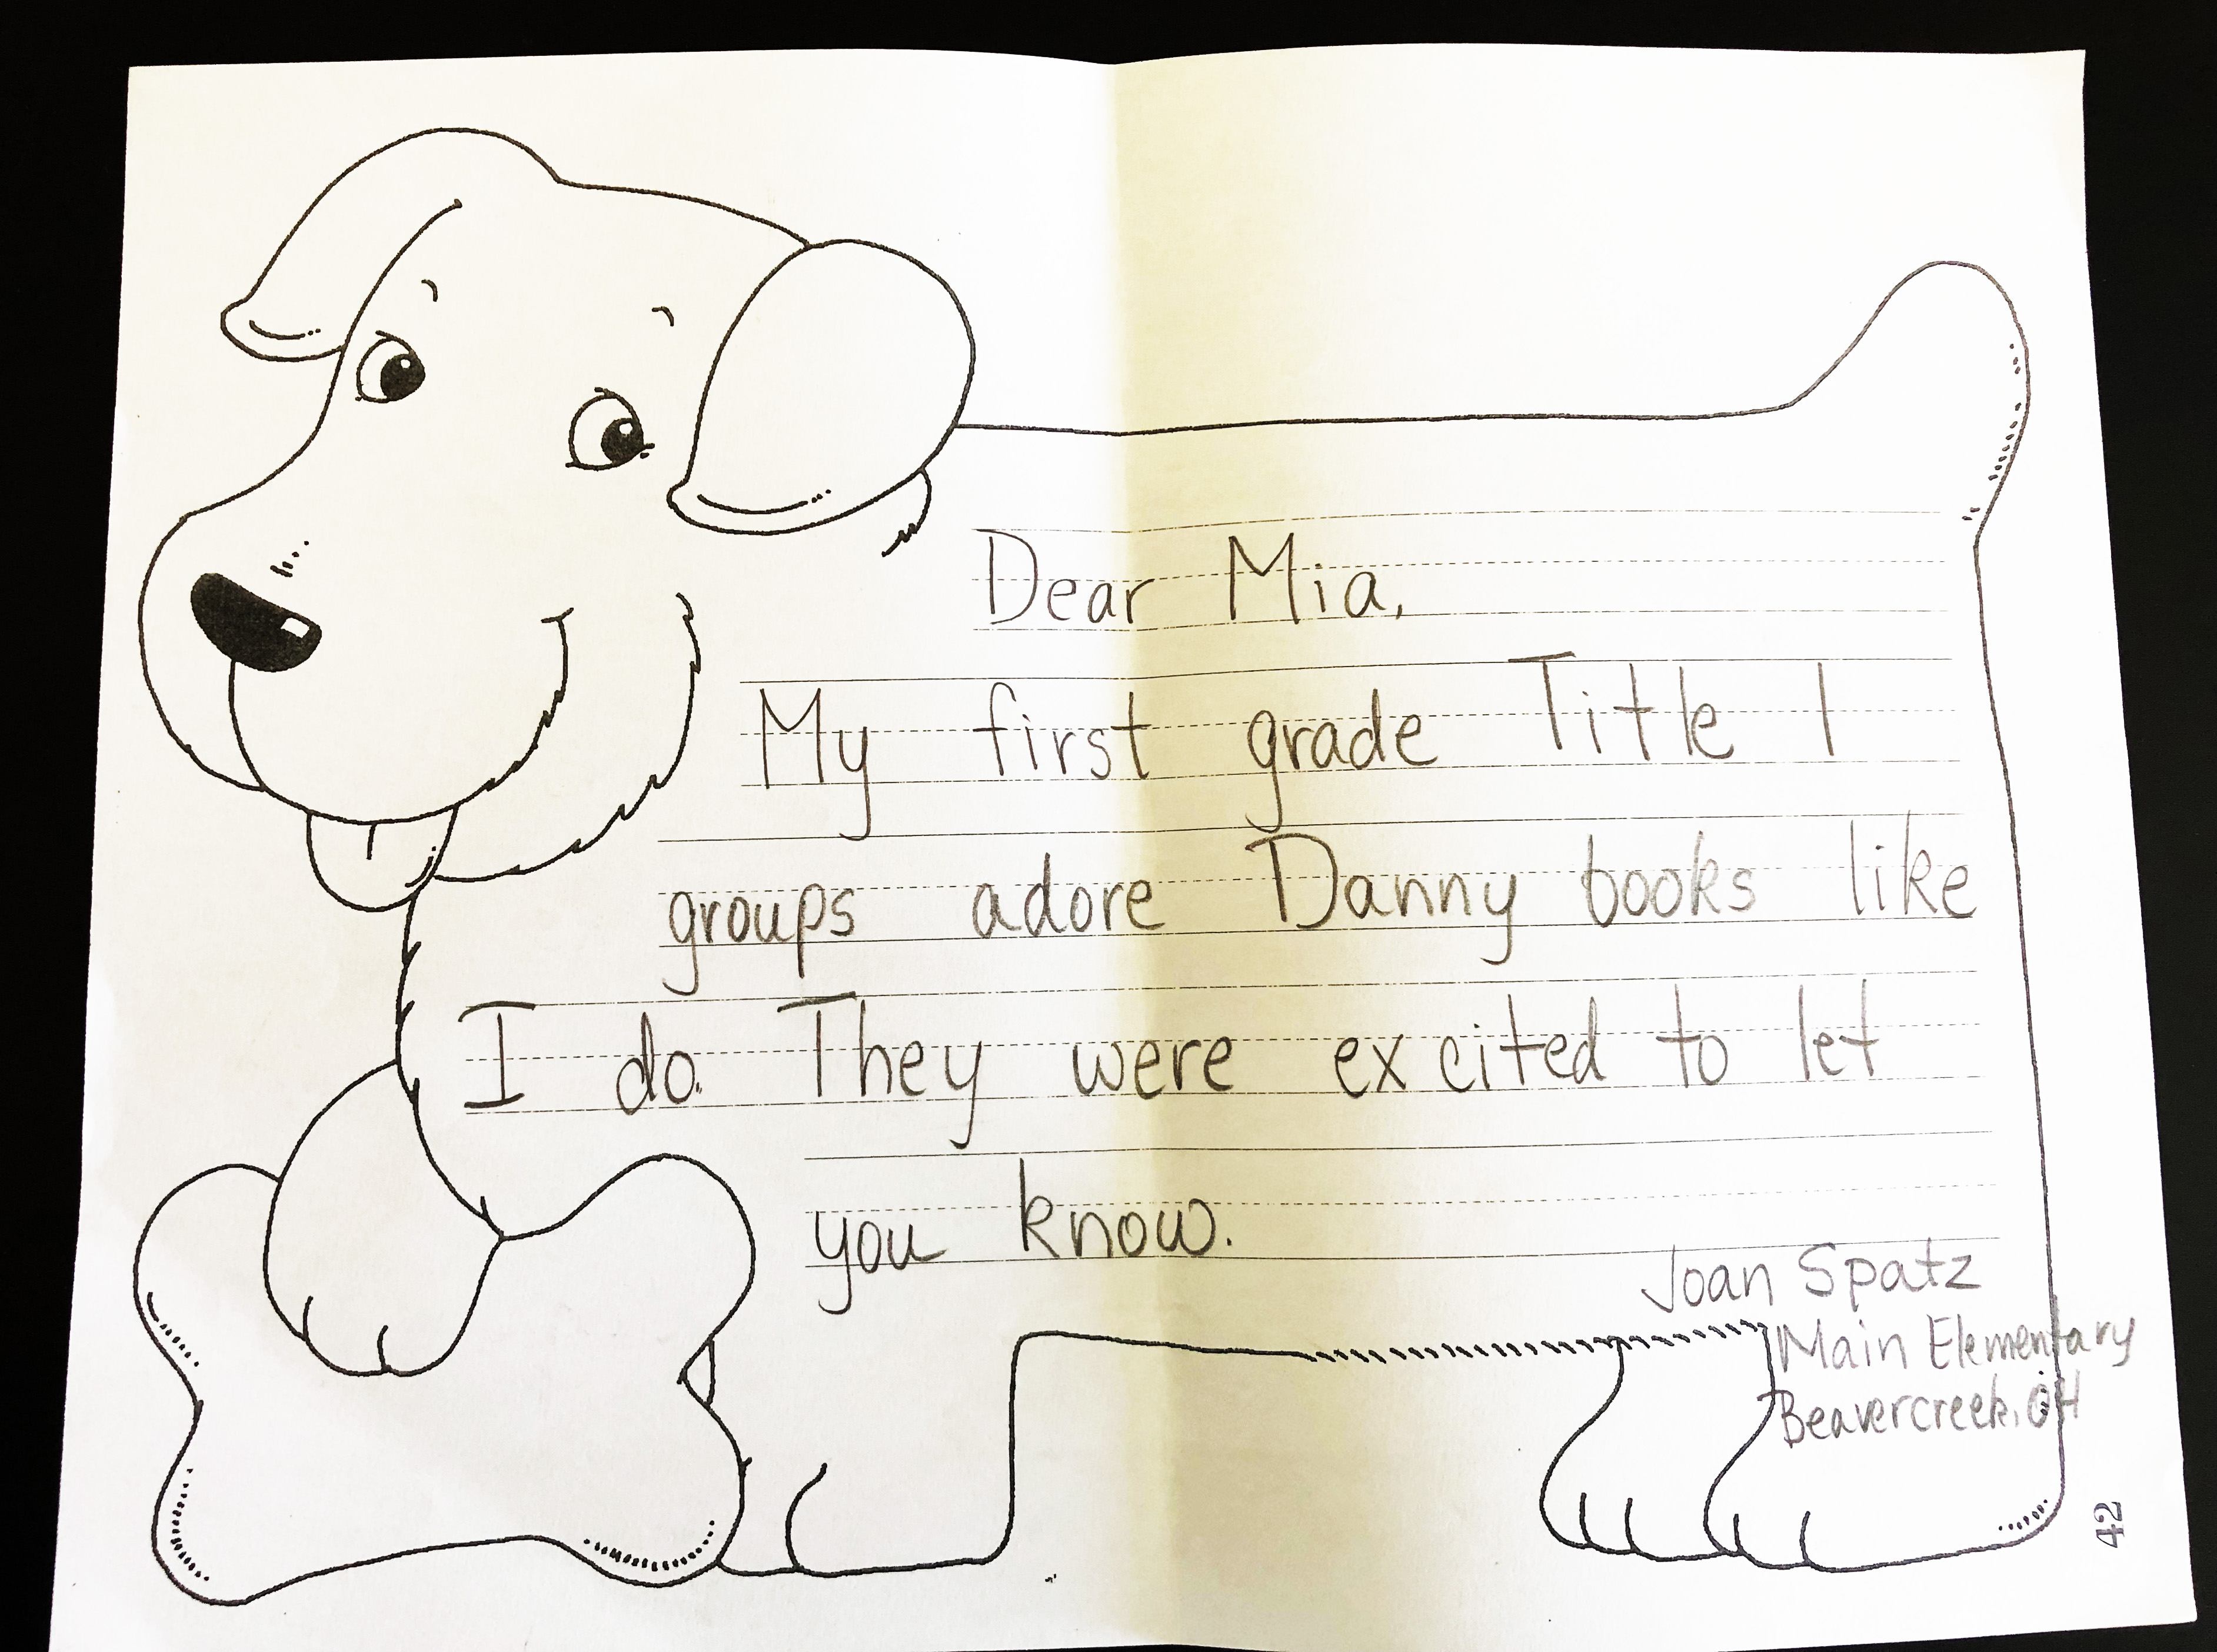 Dear Mia,
My first grade Title 1
groups adore Danny books like
I do. They were excited to let
you know.
Joan Spatz
Main Elementary
Beavercreek, OH
42